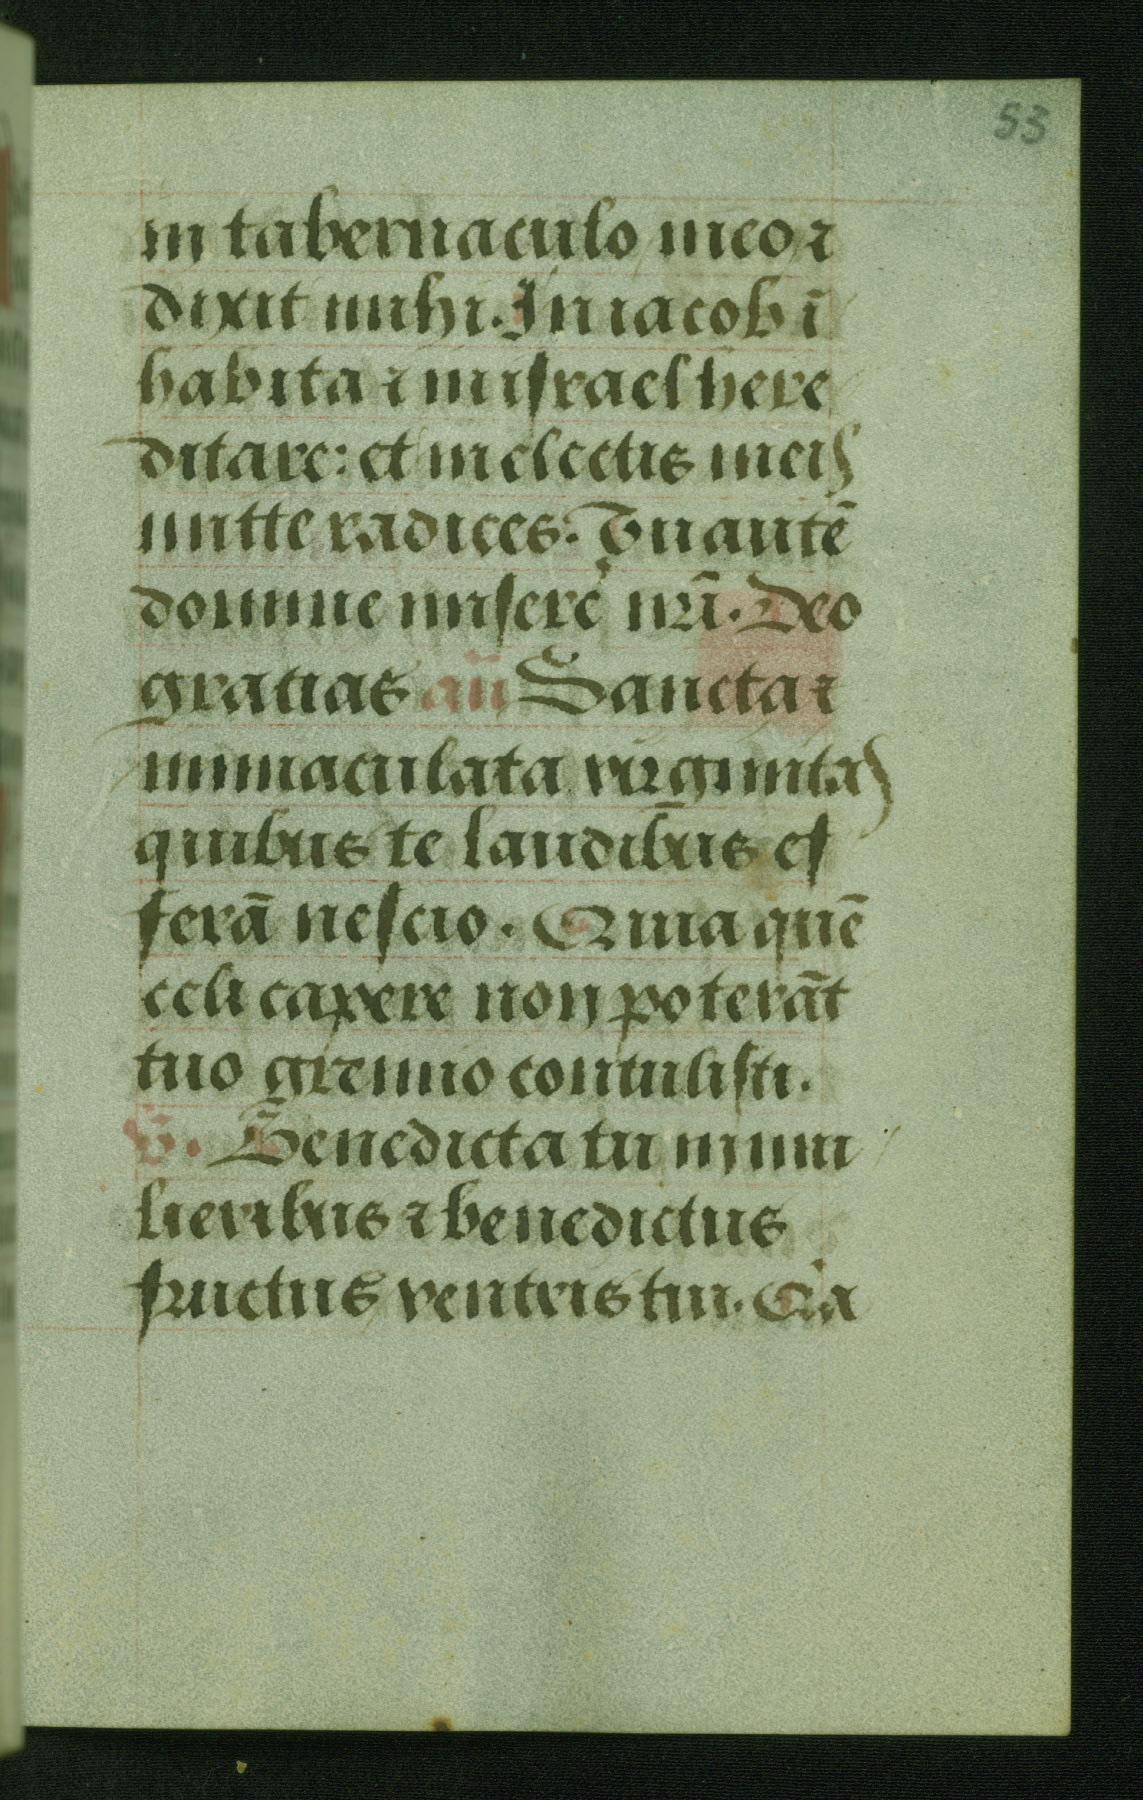 53
in tabernaculo meo ⁊
dixit mihi. In iacob ī
habita ⁊ in israel here
ditare: et in electis meis
mitte radices: Tu autē
domine miserē nr̄i. Deo
gratias an̄ Sancta ⁊
immaculata virginitas
quibus te laudibus ef
ferā nescio. Quia quē
celi capere non poterāt
tuo gremio contulisti.
V̄. Benedicta tu in mu
lieribus ⁊ benedictus
fructus ventris tui. Qa